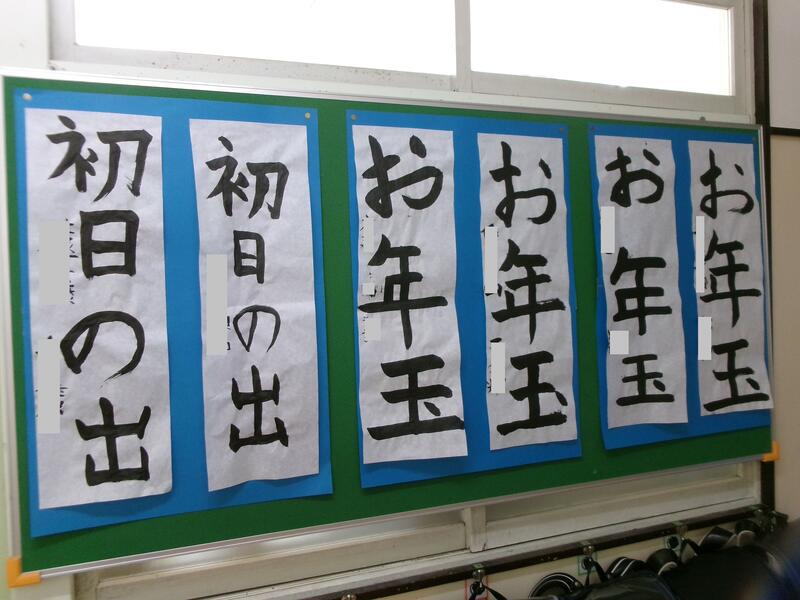 初日の出
初日の出
お年玉
お年玉
お年玉
お年玉